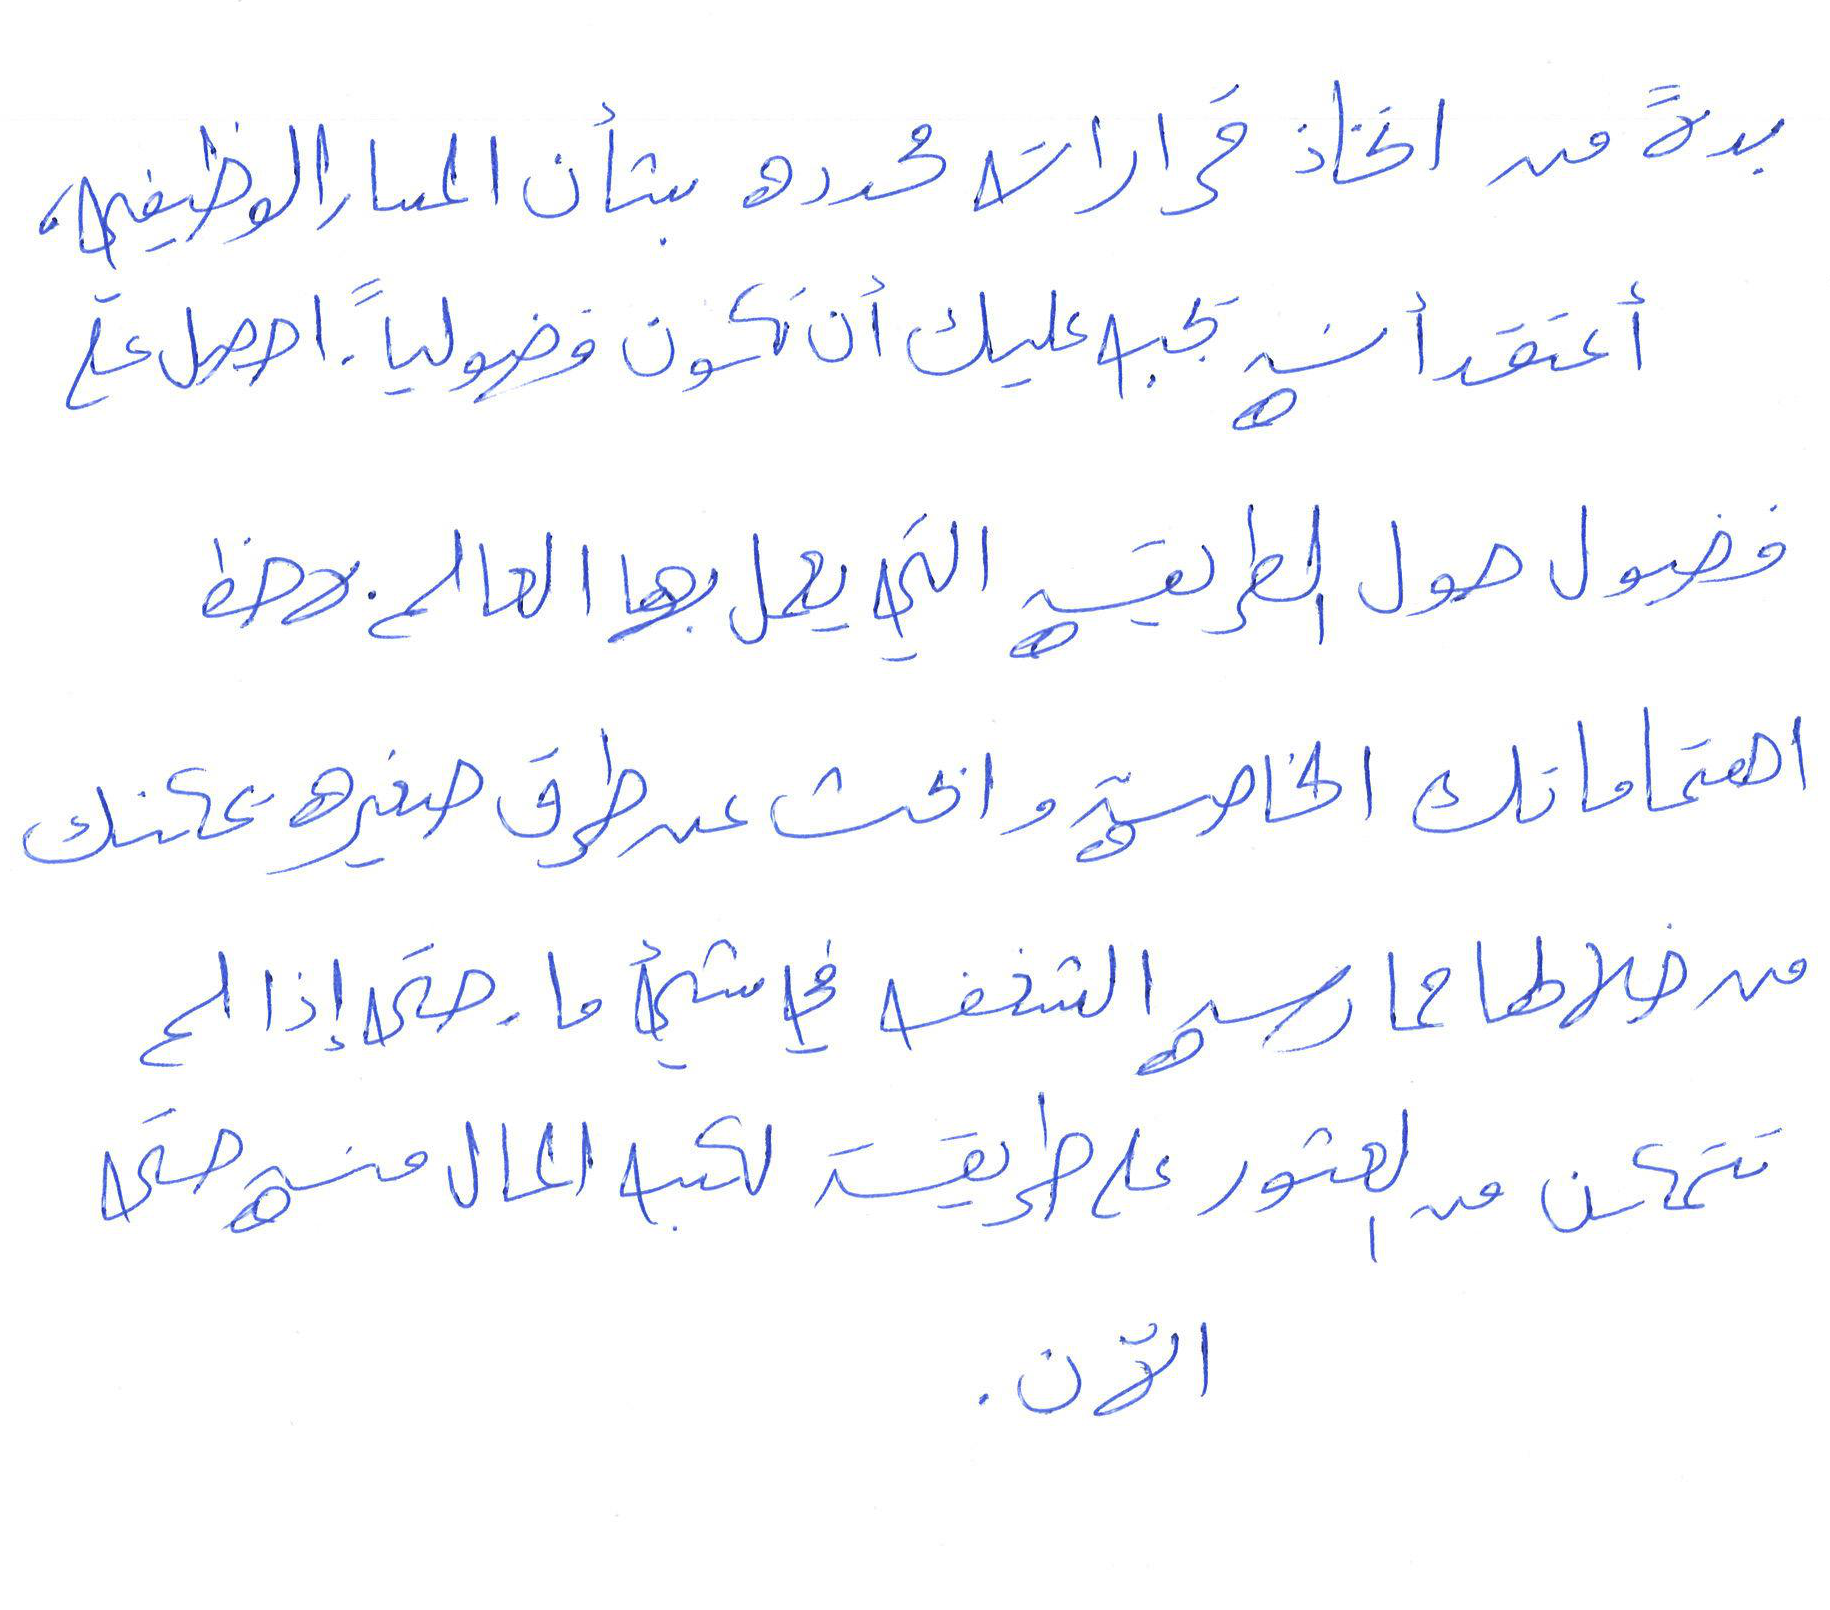 بدلاً من اتخاذ قرارات محدده بشأن المسار الوظيفي،
أعتقد أنه يجب عليك أن تكون فضولياً. احصل على
فضول حول الطريقه التي يعمل بها العالم. لاحظ
اهتماماتك الخاصة وابحث عن طرق صغيره يمكنك
من خلالها ممارسه الشغف في شيئ ما. حتى إذا لم
تتمكن من العثور على طريقة لكسب المال منه حتى
الآن.